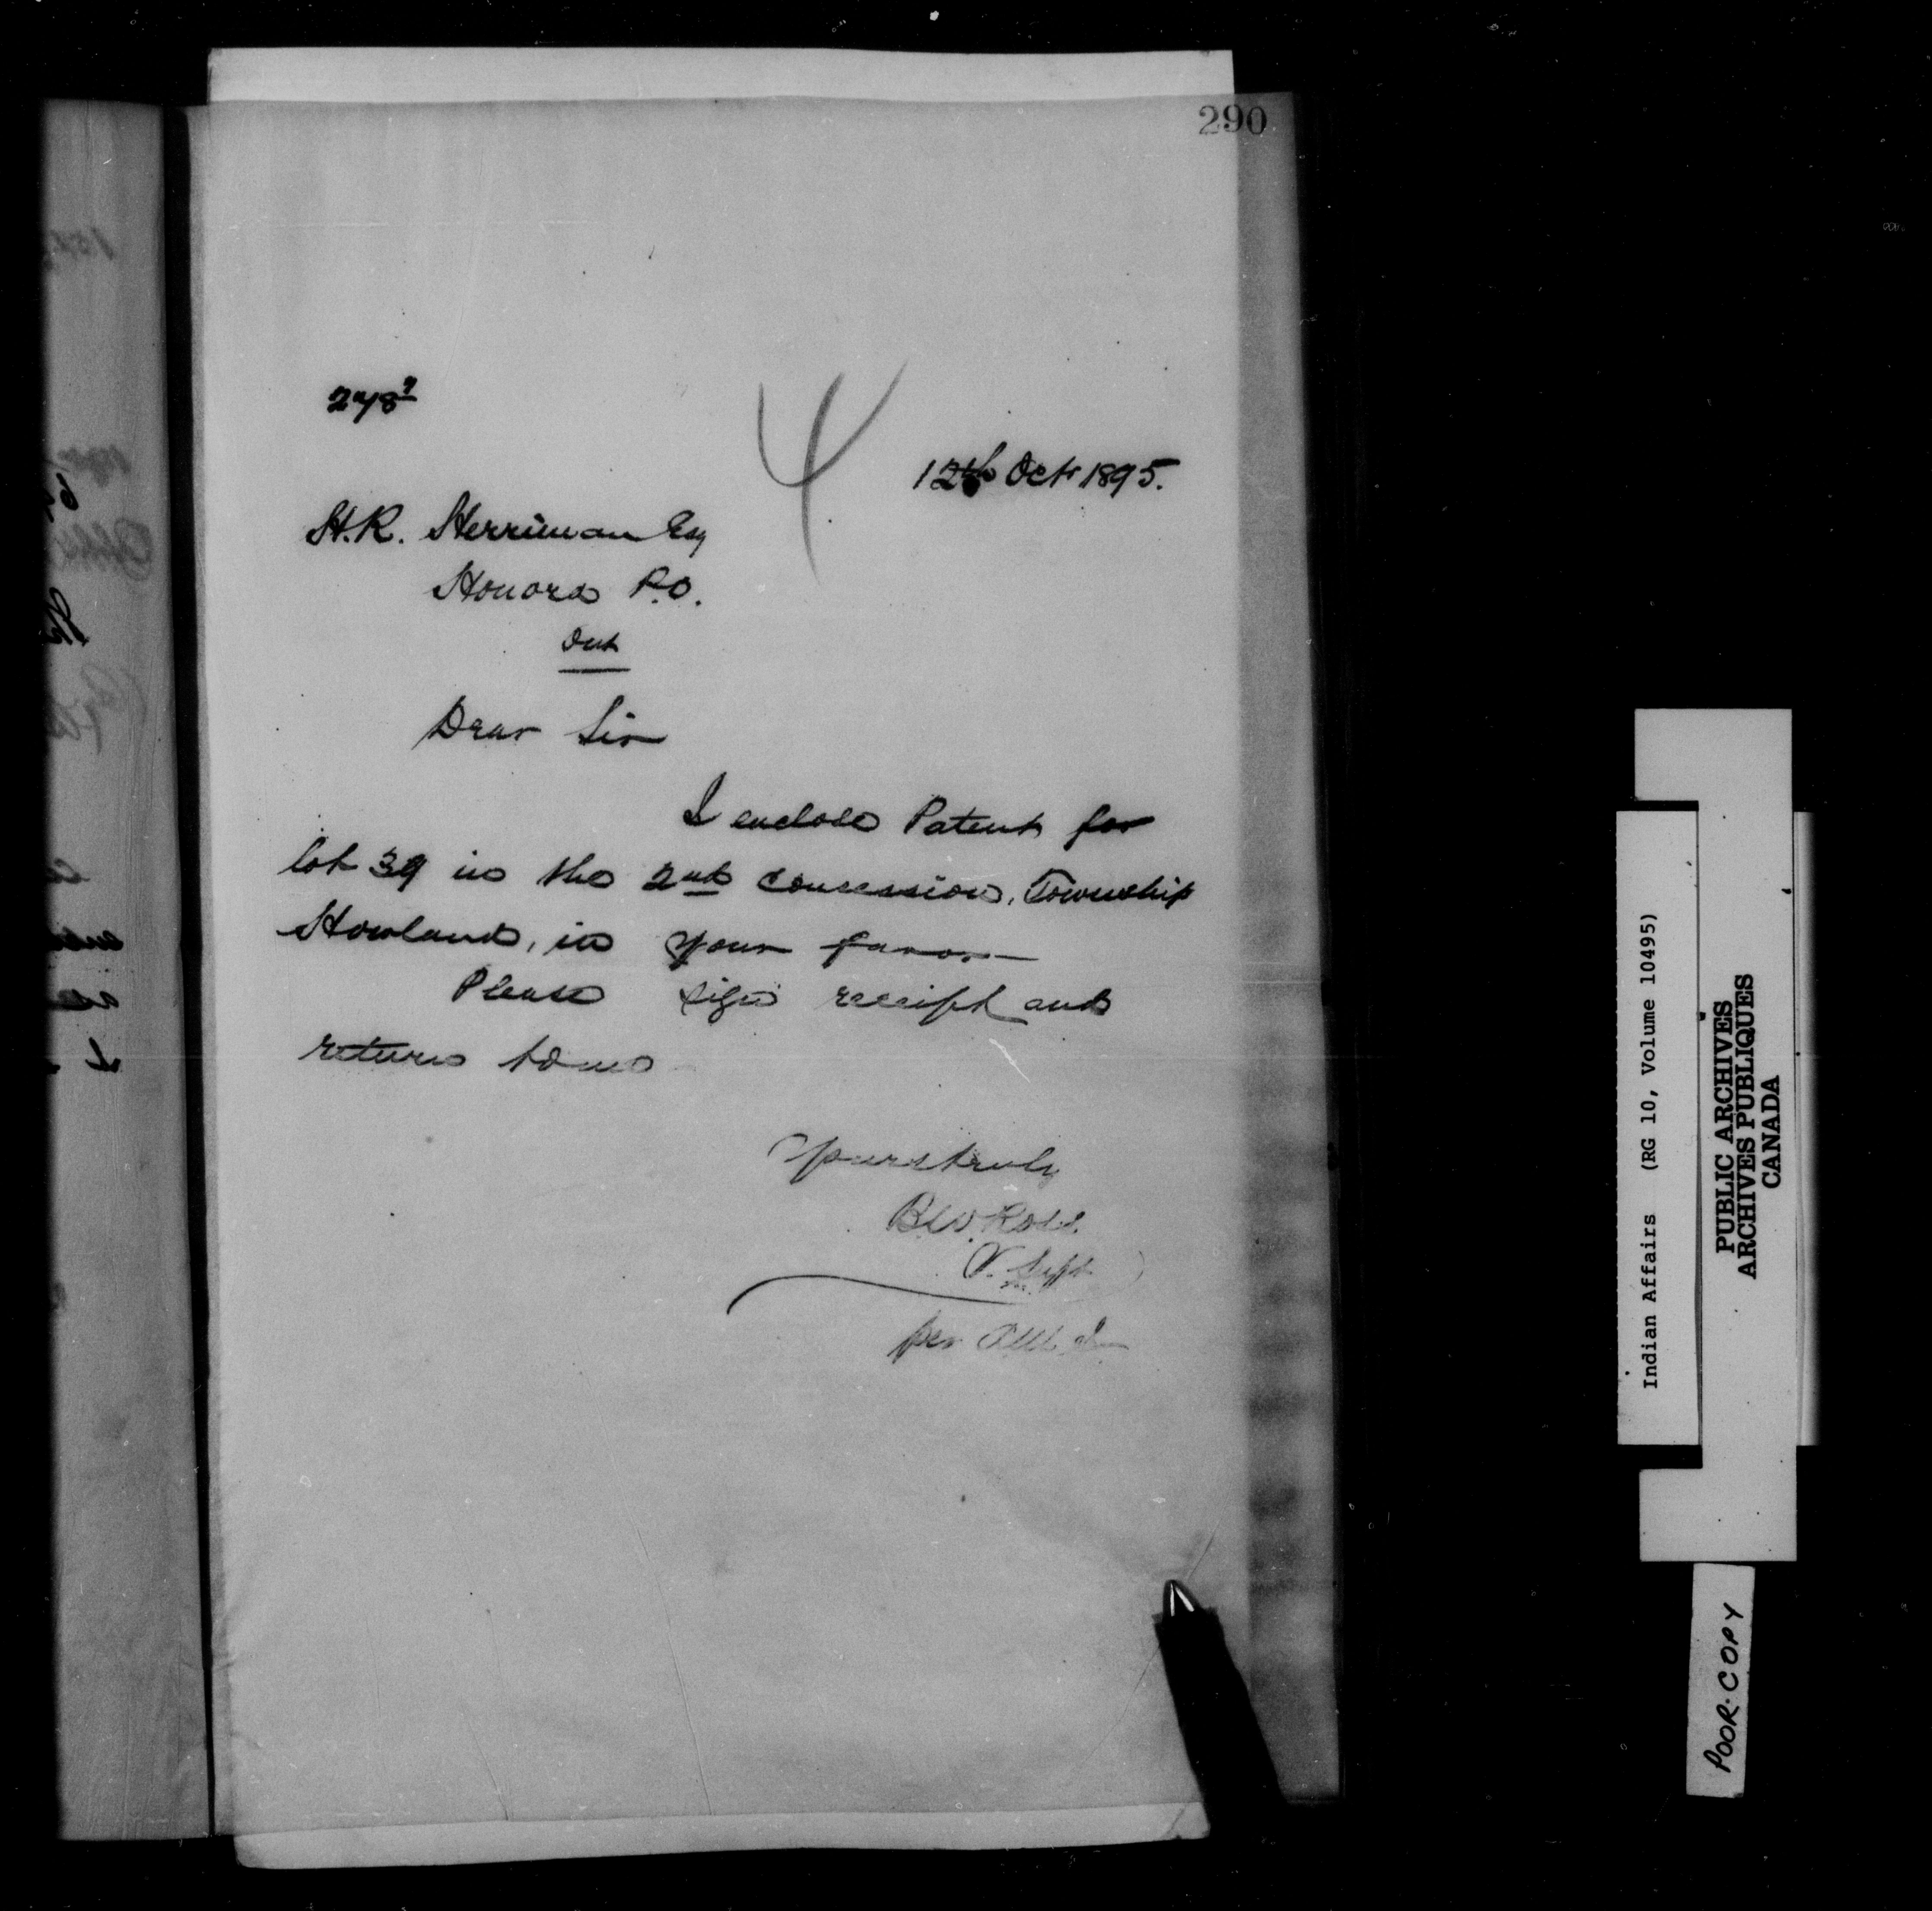 290
278 7
4
12th Oct 1895.
H.R. Herriman Esq
Honora P.O.
Ont
Dear Sir
I enclose Patent for
lot 39 in the 2nd Concession, Township
Howland, in your favor
Please sign receipt and
return to me
Yours truly
B.W. Ross.
V. Supt.
per
Indian Affairs (RG 10, Volume 10495)
PUBLIC ARCHIVES
ARCHIVES PUBLIQUES
CANADA
POOR COPY